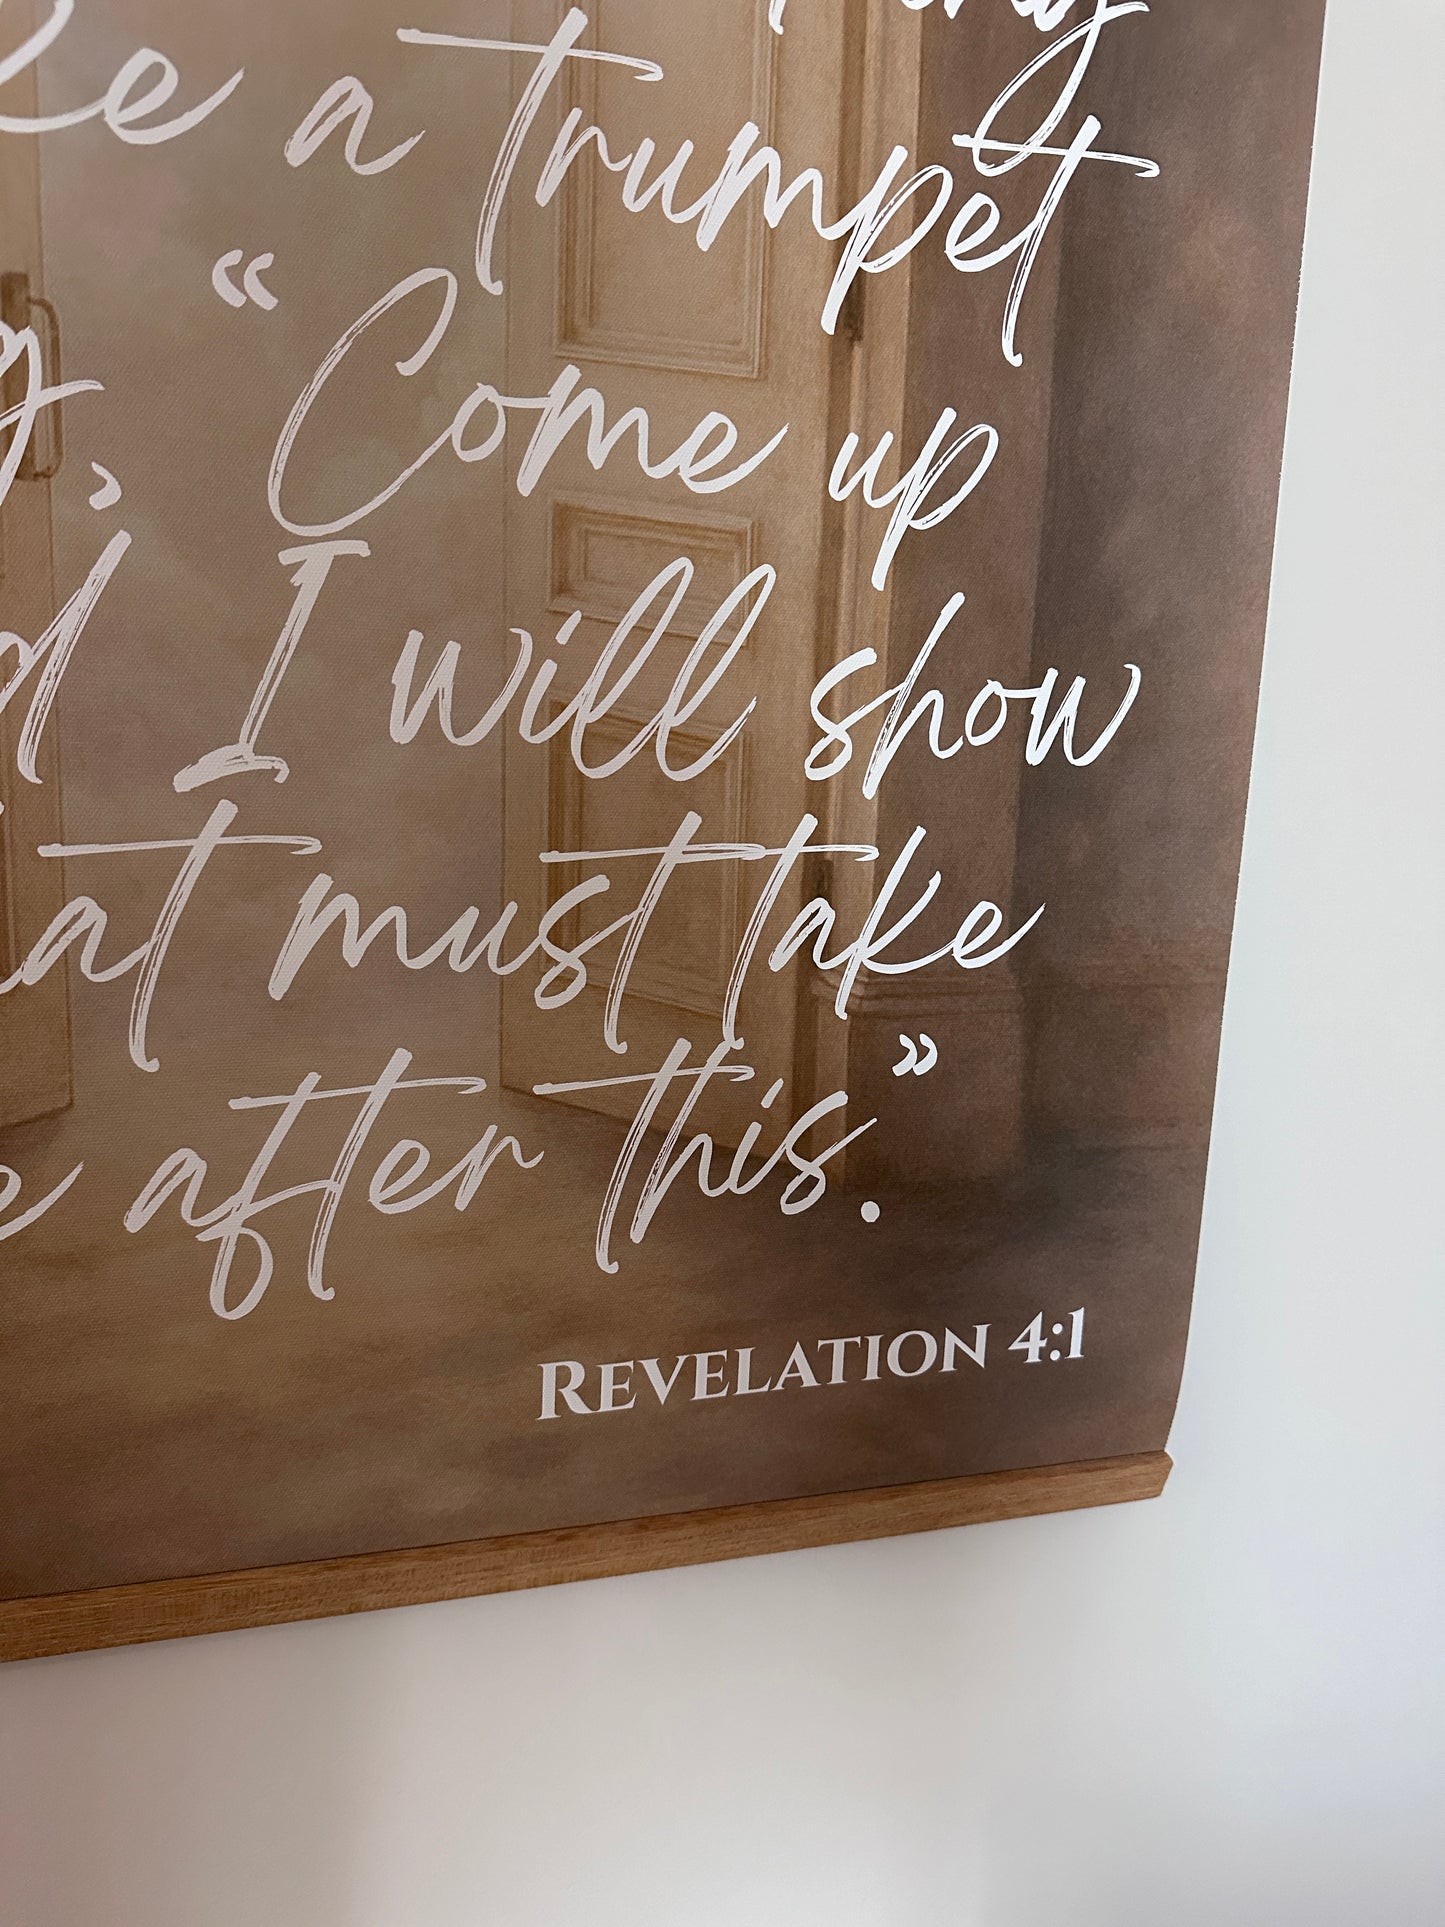 a trumpet
"Come up
I will show
must take
after this."
REVELATION 4:1